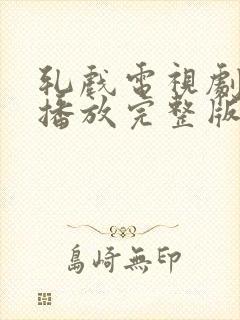 乳戲電視劇
播放完整版
島崎無印